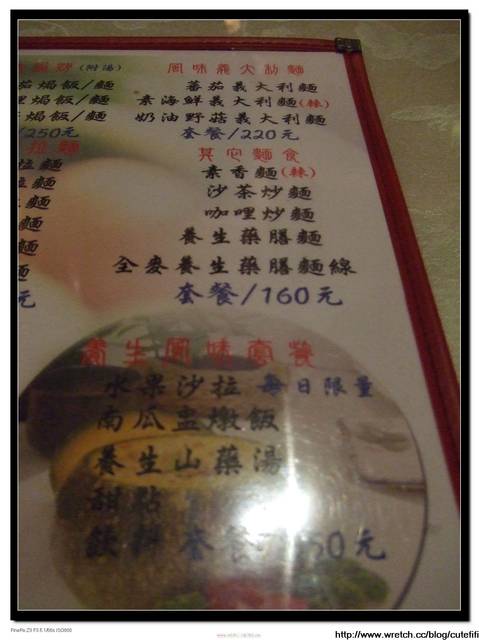 (附湯)
焗飯/麵
焗飯/麵
焗飯/麵
/250元
拉麵
麵
麵
麵
麵
麵
元
風味義大利麵
蕃茄義大利麵
素海鮮義大利麵(辣)
奶油野菇義大利麵
套餐/220元
其它麵食
素香麵(辣)
沙茶炒麵
咖哩炒麵
養生藥膳麵
全麥養生藥膳麵線
套餐/160元
養生風味套餐
水果沙拉 每日限量
南瓜盅燉飯
養生山藥湯
甜點
飲料 套餐/ 50元
FinePix Z3 F3.5 1/60s ISO800
http://www.wretch.cc/blog/cutefifi